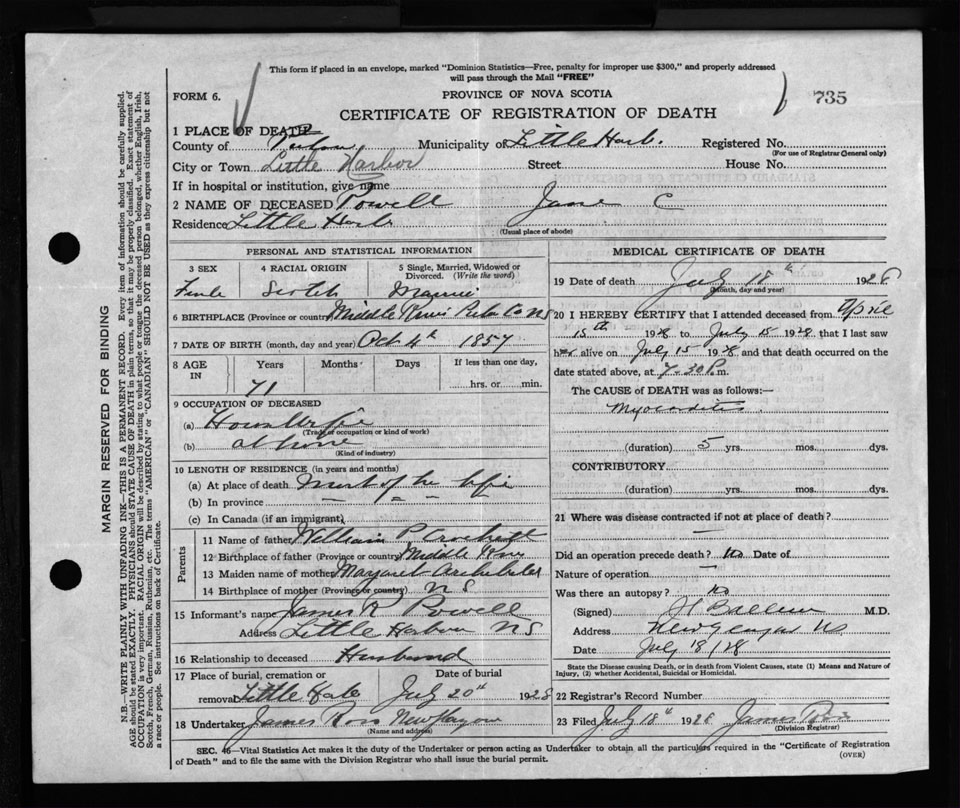 This form if placed in an envelope, marked "Dominion Statistics—Free, penalty for improper use $300," and properly addressed
will pass through the Mail "FREE"
FORM 6.
PROVINCE OF NOVA SCOTIA
735
CERTIFICATE OF REGISTRATION OF DEATH
1 PLACE OF DEATH
County of Pictou Municipality of Little Harb. Registered No.
(For use of Registrar General only)
City or Town Little Harbor Street House No.
If in hospital or institution, give name
2 NAME OF DECEASED Powell Jane C
Residence Little Harb
(Usual place of abode)
PERSONAL AND STATISTICAL INFORMATION
3 SEX 4 RACIAL ORIGIN 5 Single, Married, Widowed or Divorced. (Write the word)
Scotch
6 BIRTHPLACE (Province or country) Middle River Pictou Co NS
7 DATE OF BIRTH (month, day and year) Oct 4th 1857
8 AGE IN Years Months Days If less than one day,
71 hrs. or min.
9 OCCUPATION OF DECEASED
(a) Housewife
(Trade, occupation or kind of work)
(b) at home
(Kind of industry)
10 LENGTH OF RESIDENCE (in years and months)
(a) At place of death most of her life
(b) In province — " —
(c) In Canada (if an immigrant)
Parents
11 Name of father William P
12 Birthplace of father (Province or country) Middle River
13 Maiden name of mother Margaret
14 Birthplace of mother (Province or country) N S
15 Informant's name James R Powell
Address Little Harbour N S
16 Relationship to deceased Husband
17 Place of burial, cremation or removal Date of burial
Little July 20th 1928
18 Undertaker James Ross New Glasgow
(Name and address)
MEDICAL CERTIFICATE OF DEATH
19 Date of death July 18th 1928
(Month, day and year)
20 I HEREBY CERTIFY that I attended deceased from April
15th 1928 to July 15 1928, that I last saw
her alive on July 15 1928 and that death occurred on the
date stated above, at 7-30 P.m.
The CAUSE of DEATH was as follows:—
Myocarditis
(duration) 5 yrs. mos. dys.
CONTRIBUTORY
(duration) yrs. mos. dys.
21 Where was disease contracted if not at place of death?
—
Did an operation precede death? No Date of
Nature of operation —
Was there an autopsy? No
(Signed) M.D.
Address New Glasgow NS
Date July 18/28
State the Disease causing Death, or in death from Violent Causes, state (1) Means and Nature of
Injury, (2) whether Accidental, Suicidal or Homicidal.
22 Registrar's Record Number
23 Filed July 18th 1928 James Ross
(Division Registrar)
SEC. 46—Vital Statistics Act makes it the duty of the Undertaker or person acting as Undertaker to obtain all the particulars required in the "Certificate of Registration
of Death" and to file the same with the Division Registrar who shall issue the burial permit.
(OVER)
MARGIN RESERVED FOR BINDING
N.B.—WRITE PLAINLY WITH UNFADING INK—THIS IS A PERMANENT RECORD. Every item of information should be carefully supplied.
AGE should be stated EXACTLY. PHYSICIANS should STATE CAUSE OF DEATH in plain terms, so that it may be properly classified. Exact statement of
OCCUPATION is very important. RACIAL ORIGIN will be described by stating to what people or tongue the deceased person belonged, whether English, Irish,
Scotch, French, German, Russian, Ruthenian, etc. The terms "AMERICAN" or "CANADIAN" SHOULD NOT BE USED as they express citizenship but not
a race or people. See instructions on back of Certificate.